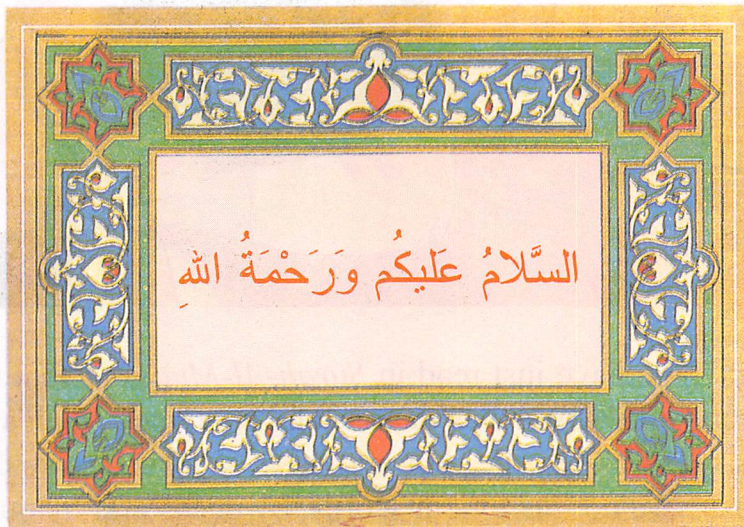 السَّلامُ عَليكُم وَرَحْمَةُ اللهِ